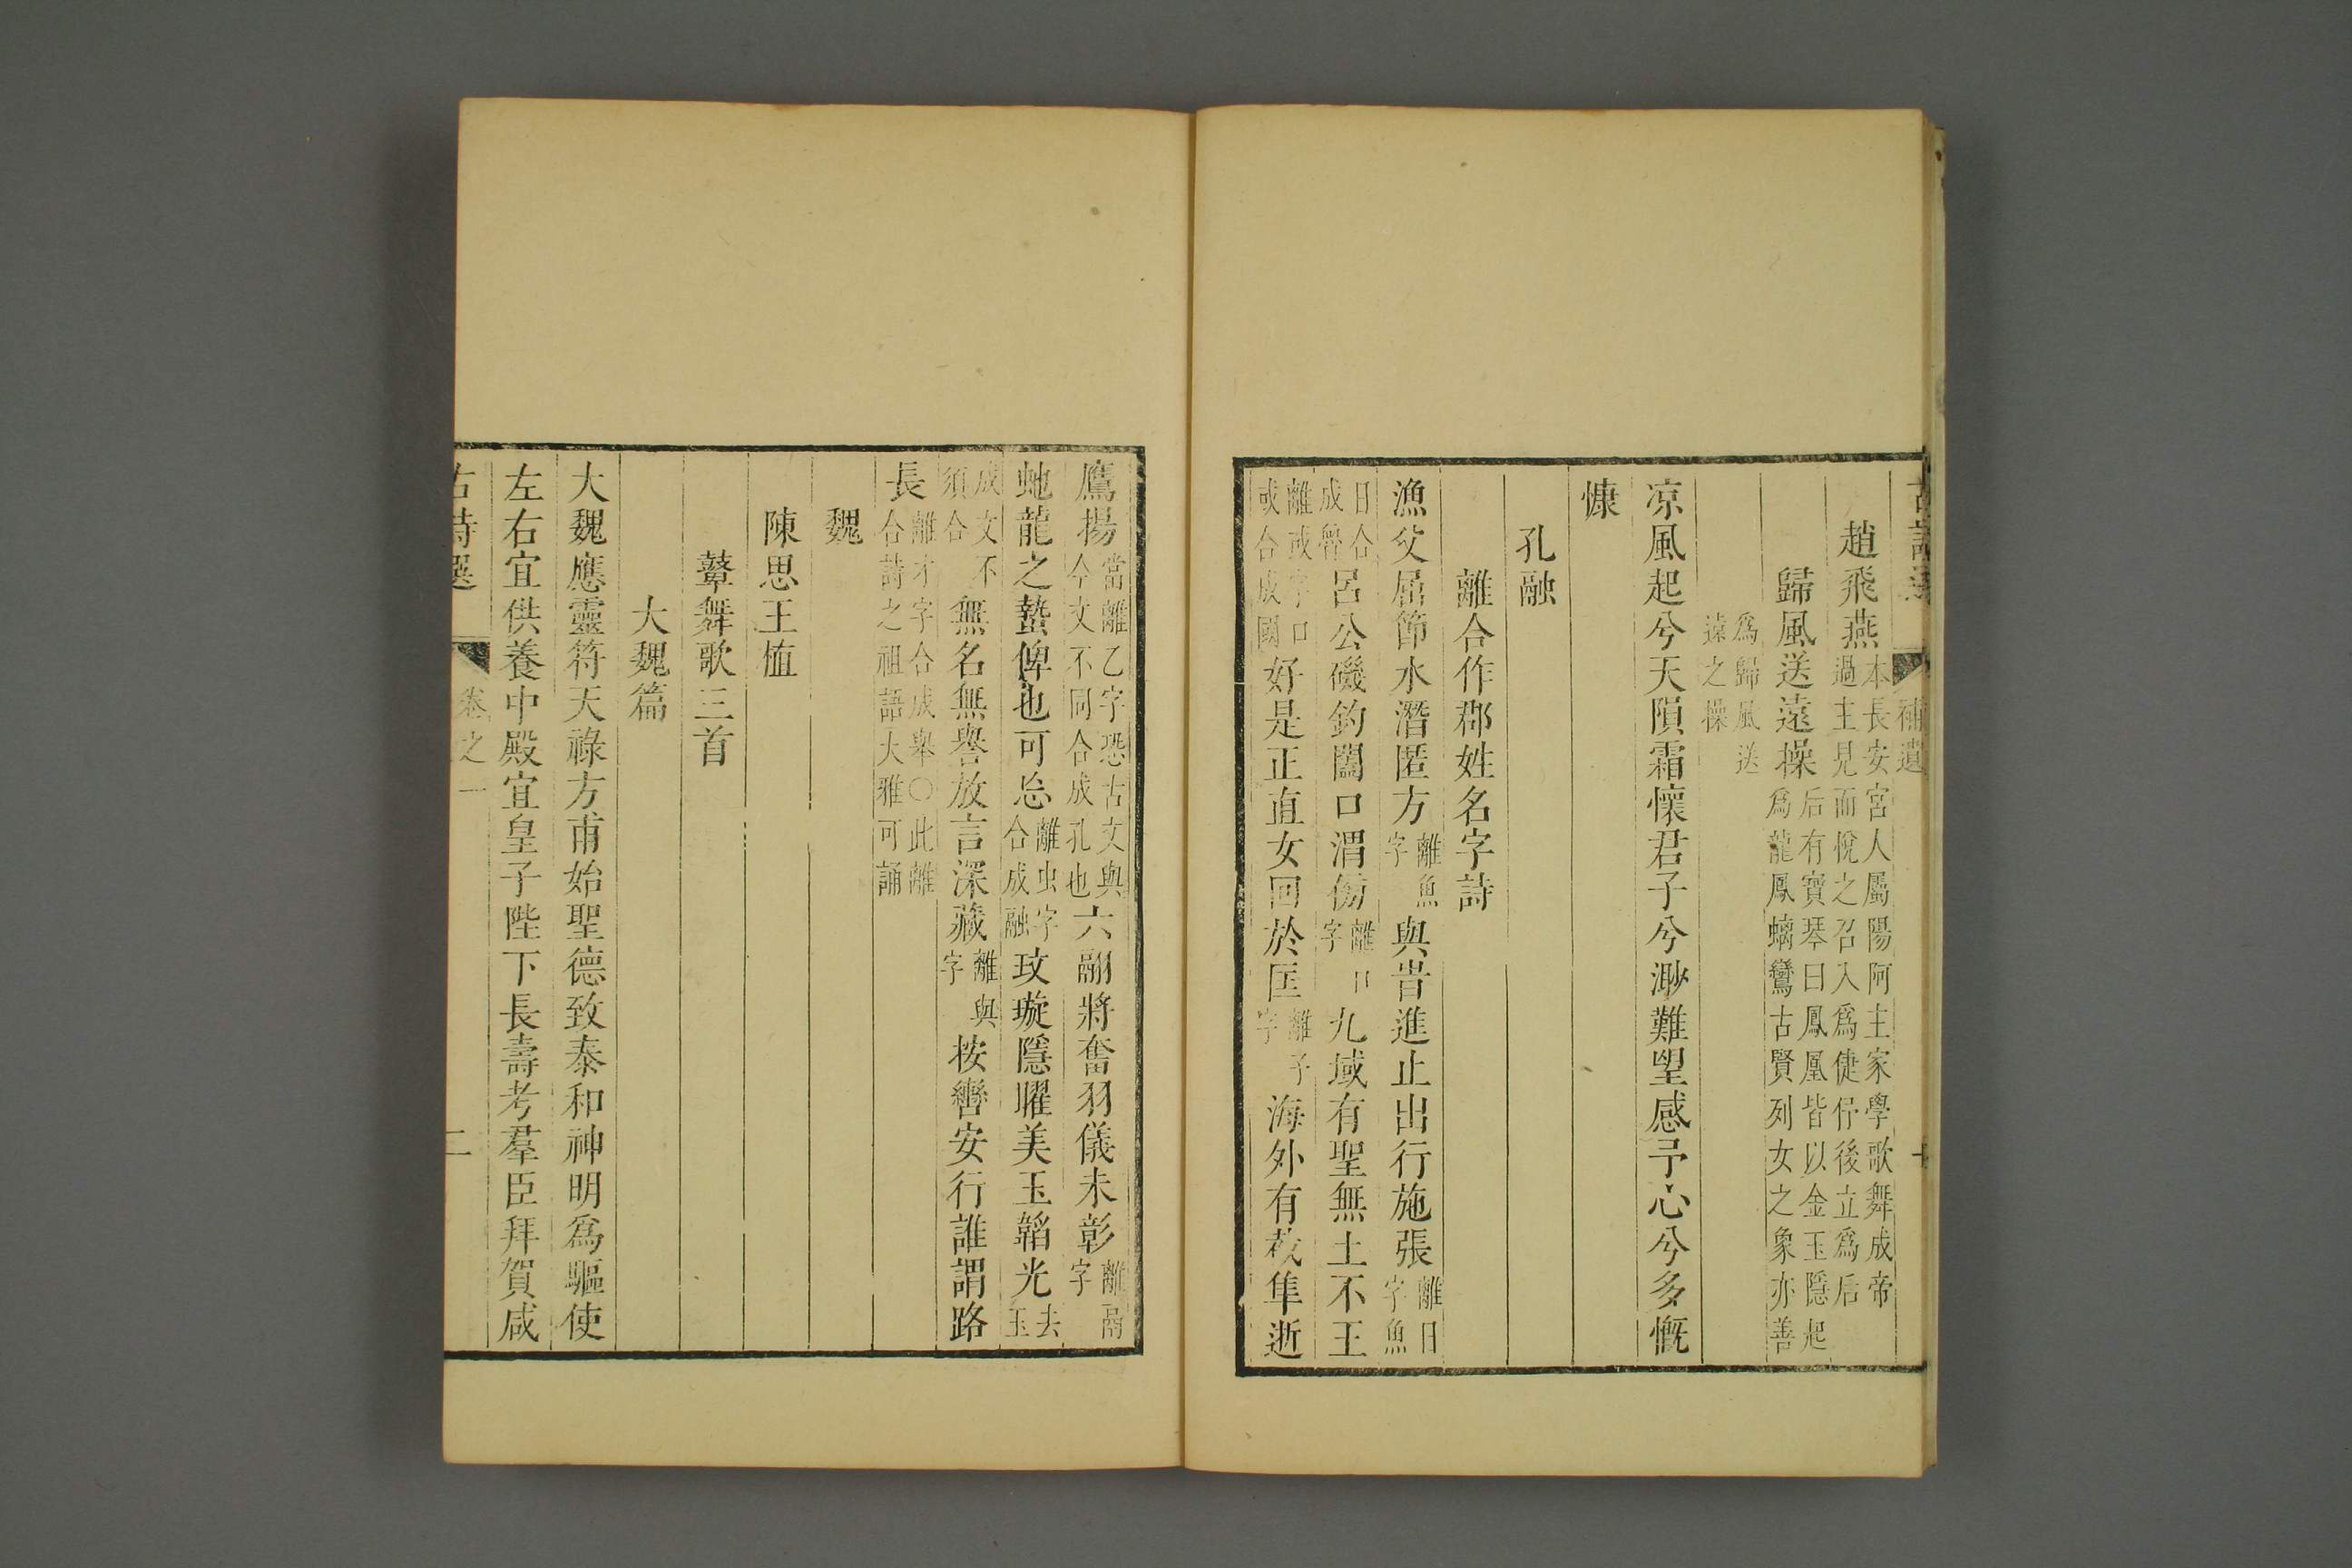 古詩選 補遺
趙飛燕本長安宮人屬陽阿主家學歌舞成帝過主見而悅之召入爲倢伃後立爲后
歸風送遠操后有寶琴曰鳳凰皆以金玉隱起爲龍鳳螭鸞古賢列女之象亦善
爲歸風送遠之操
凉風起兮天隕霜懷君子兮渺難望感予心兮多慨
慷
孔融
離合作郡姓名字詩
漁父屈節水潛匿方離魚字與旹進止出行施張離日字魚
日合成魯呂公磯釣闔口渭傍離口字九域有聖無土不王
離或字口或合成國好是正直女回於匡離子字海外有截隼逝
鷹揚當離乙字恐古文與今文不同合成孔也六翮將奮羽儀未彰離鬲字
虵龍之蟄俾也可忘離虫字合成融玫璇隱曜美玉韜光去玉
成文不須合無名無譽放言深藏離與字按轡安行誰謂路
長離才字合成舉○此離合詩之祖語大雅可誦
魏
陳思王植
鼙舞歌三首
大魏篇
大魏應靈符天祿方甫始聖德致泰和神明爲驅使
左右宜供養中殿宜皇子陛下長壽考羣臣拜賀咸
古詩選 卷之一 二